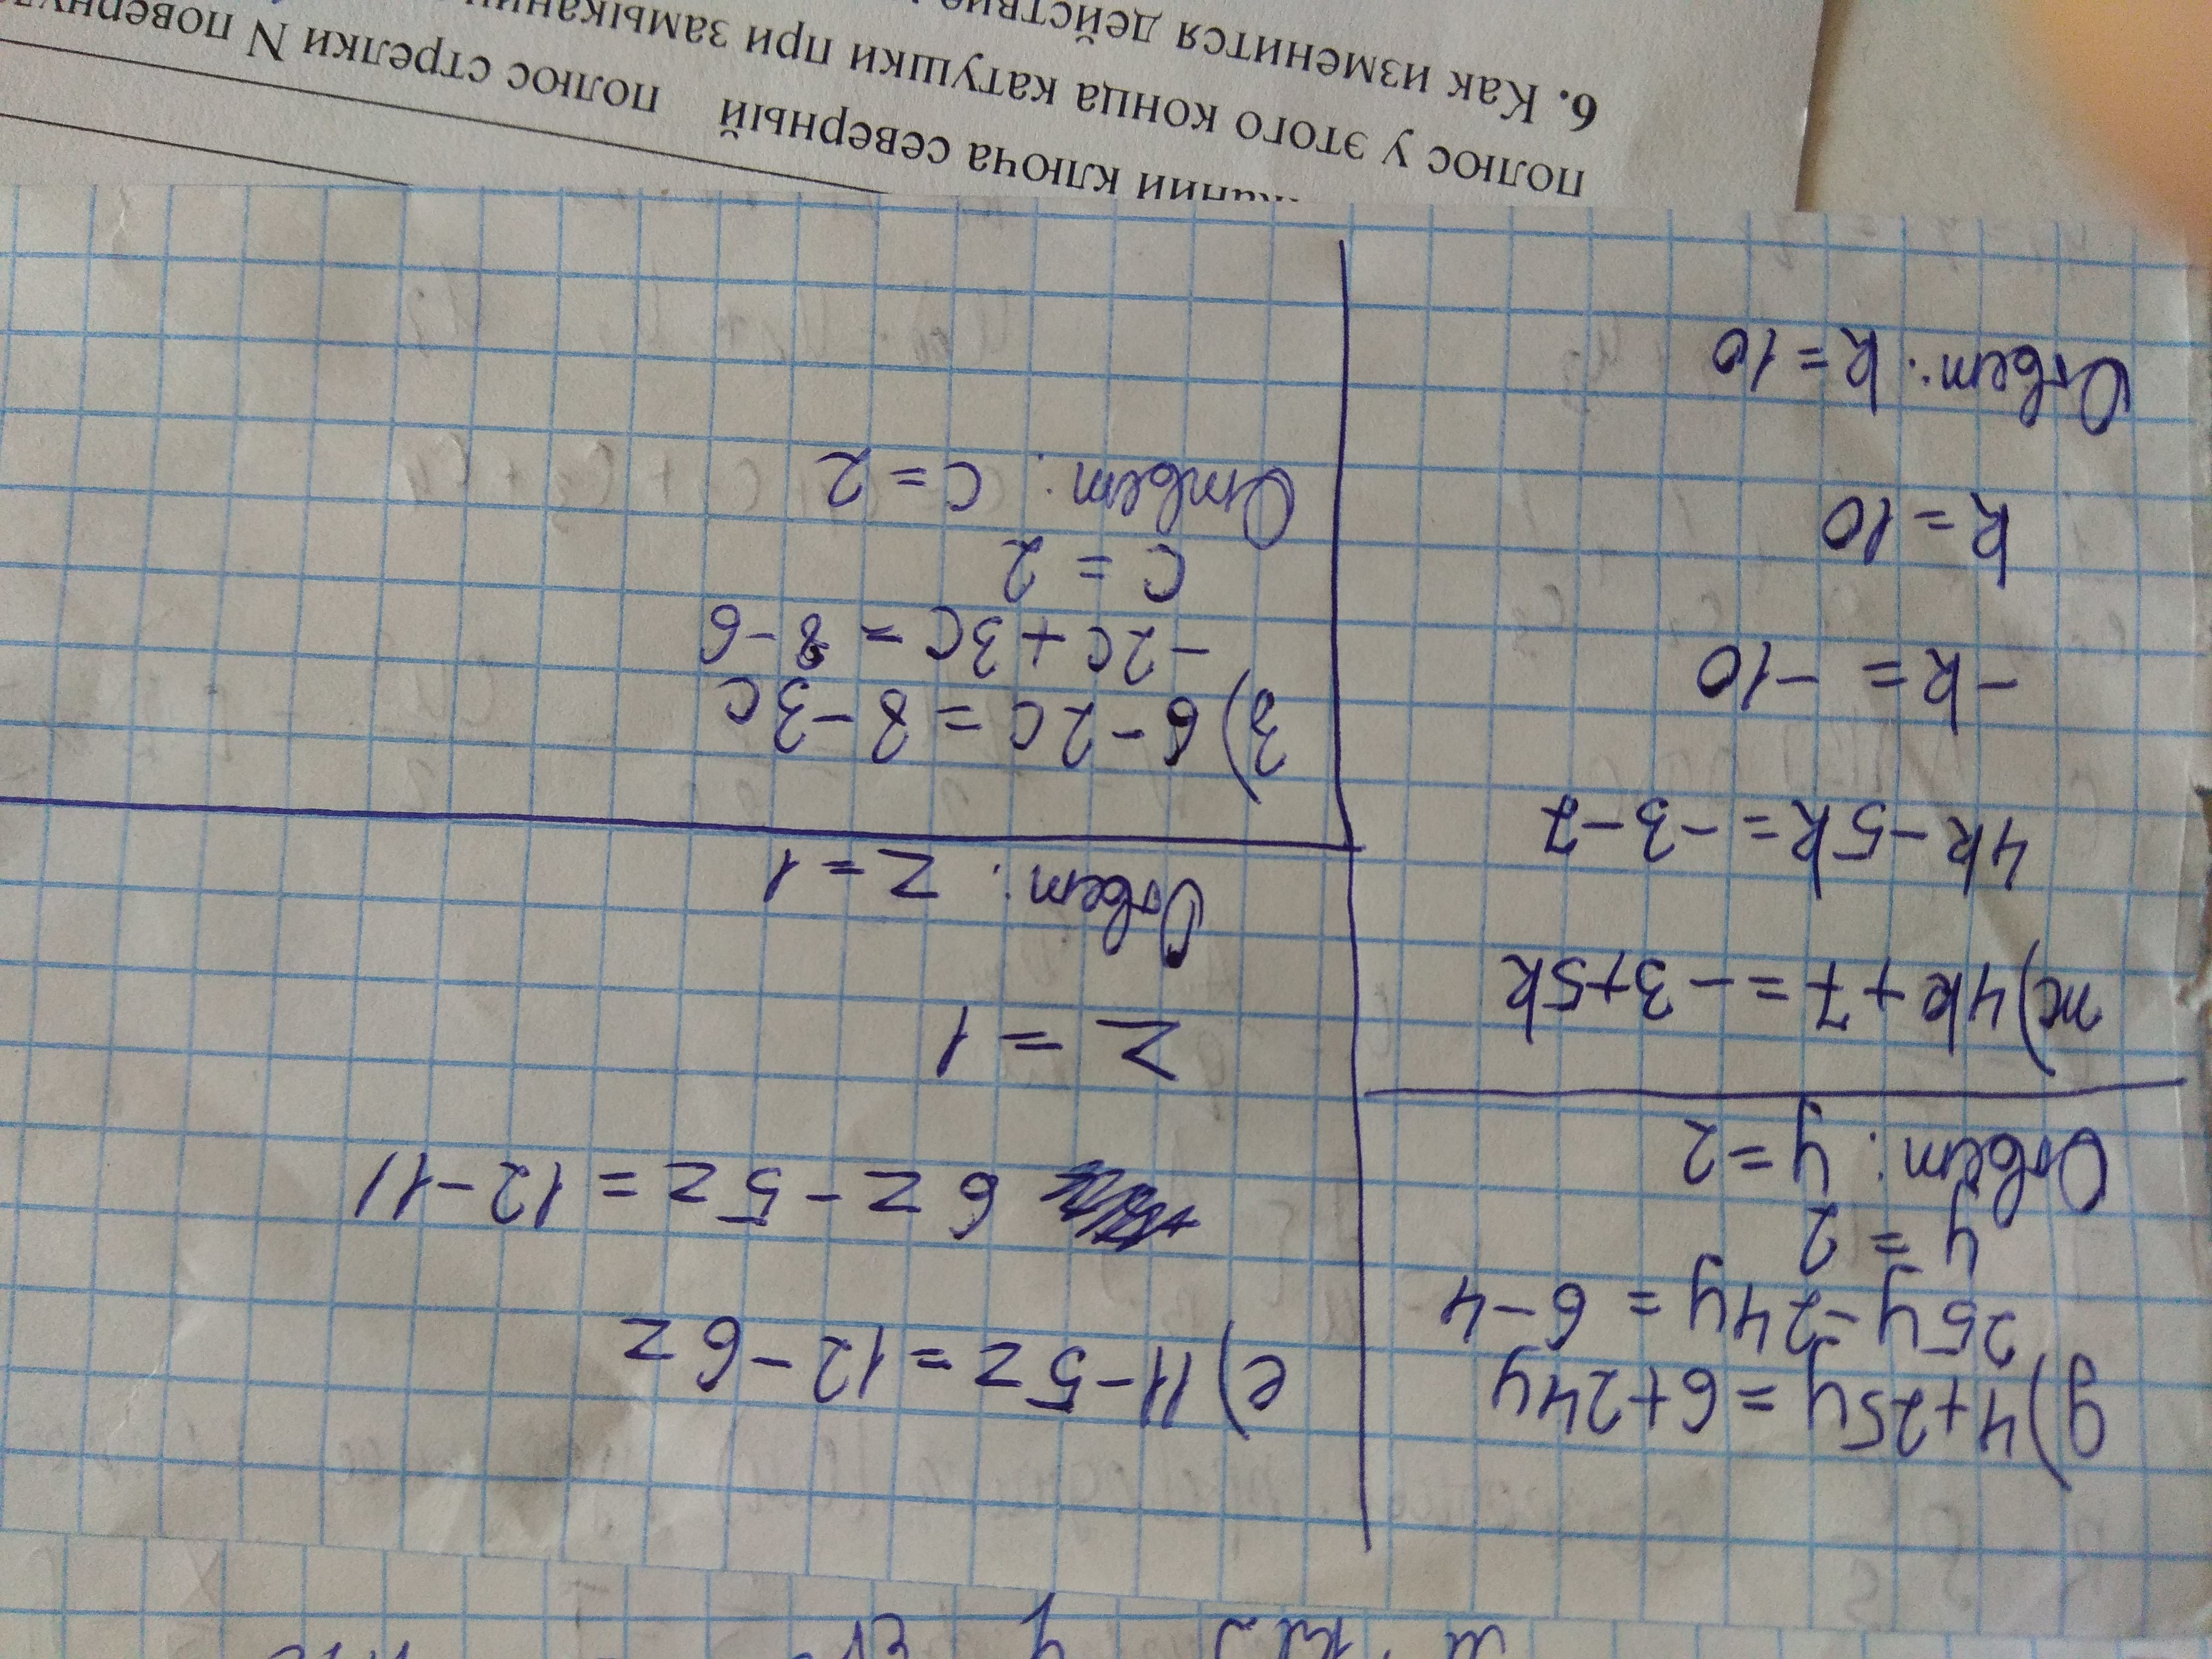 д) 4+25y = 6+24y
25y-24y = 6-4
y = 2
Ответ: y=2
е) 11-5z=12-6z
6z-5z=12-11
z=1
Ответ: z=1
ж) 4k+7=-3+5k
4k-5k=-3-7
-k= -10
k=10
Ответ: k=10
з) 6-2c=8-3c
-2c+3c=8-6
c=2
Ответ: c=2
ключа северный полюс стрелки N
полюс у этого конца катушки при
6. Как изменится действие